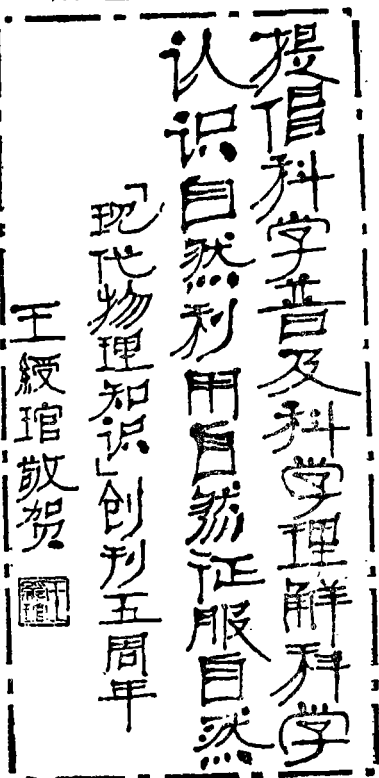 提倡科学普及科学理解科学
认识自然利用自然征服自然
「现代物理知识」创刊五周年
王绶琯敬贺
王绶琯